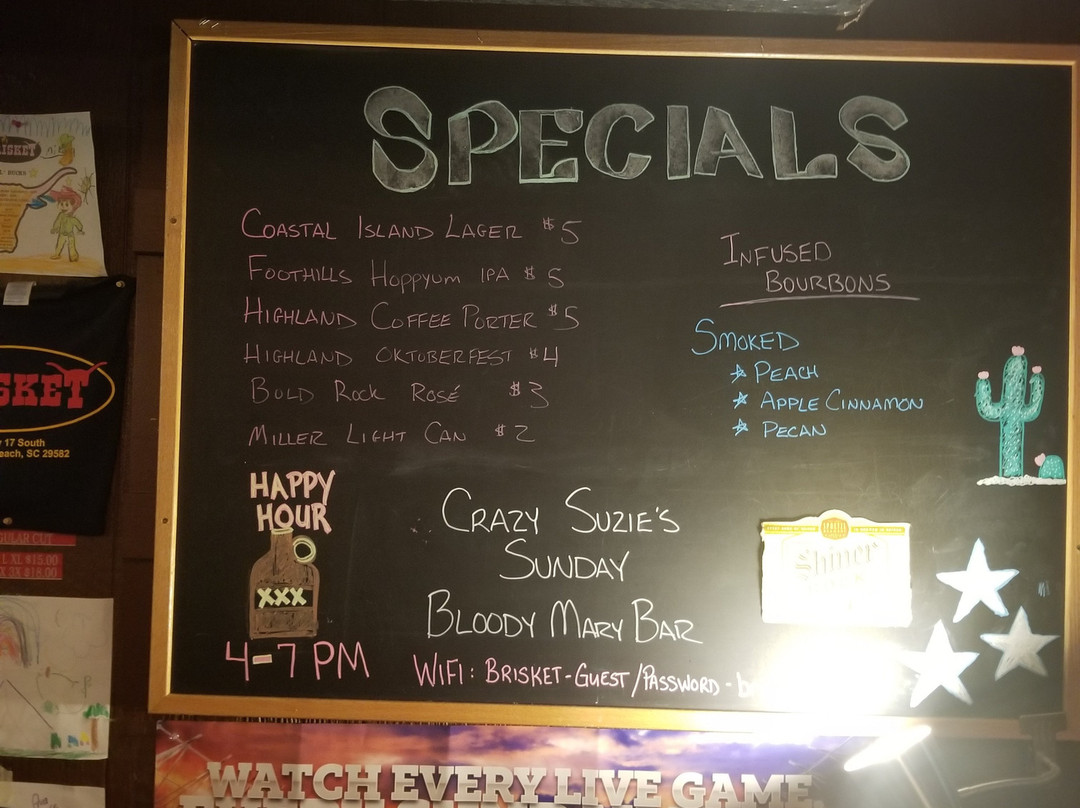 SPECIALS
COASTAL ISLAND LAGER $5
FOOTHILLS HOPPYUM IPA $5
HIGHLAND COFFEE PORTER $5
HIGHLAND OKTOBERFEST $4
BOLD ROCK ROSÉ $3
MILLER LIGHT CAN $2
INFUSED
BOURBONS
SMOKED
PEACH
APPLE CINNAMON
PECAN
HAPPY
HOUR
XXX
4-7 PM
CRAZY SUZIE'S
SUNDAY
BLOODY MARY BAR
WIFI: BRISKET-GUEST/PASSWORD - b
Shiner
ISKET
SKET
17 South
each, SC 29582
GULAR CUT
L XL $15.00
X 3X $18.00
WATCH EVERY LIVE GAME